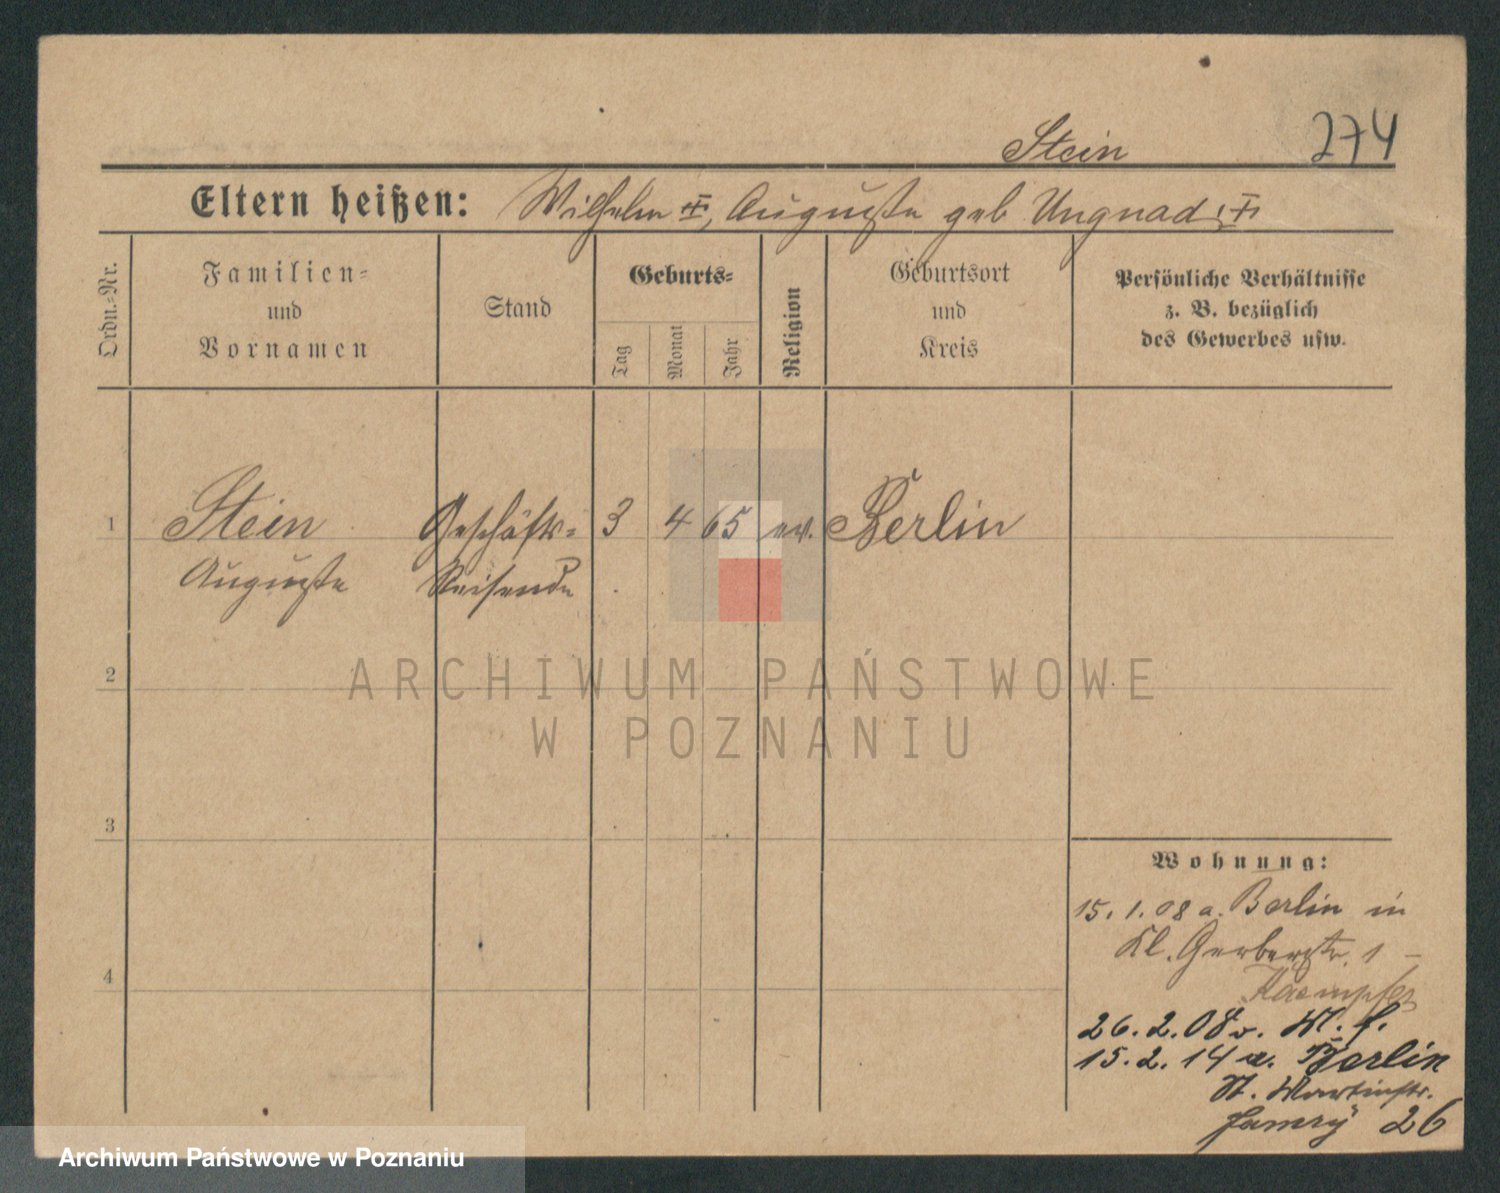 Stein 274
Eltern heißen: Wilhelm ‡, Auguste geb Ungnad, ‡
Ordn.-Nr.
Familien-
und
Vornamen
Stand
Geburts-
Tag
Monat
Jahr
Religion
Geburtsort
und
Kreis
Persönliche Verhältnisse
z. B. bezüglich
des Gewerbes usw.
1 Stein Geschäfts- 3 4 65 ev. Berlin
Auguste Reisende
2
ARCHIWUM PAŃSTWOWE
W POZNANIU
3
Wohnung:
15. 1. 08 a. Berlin in
Kl. Gerberstr. 1 –
Kaempfer
4
26. 2. 08 v.
15. 2. 14 a. Berlin
St. Martinstr.
26
Archiwum Państwowe w Poznaniu